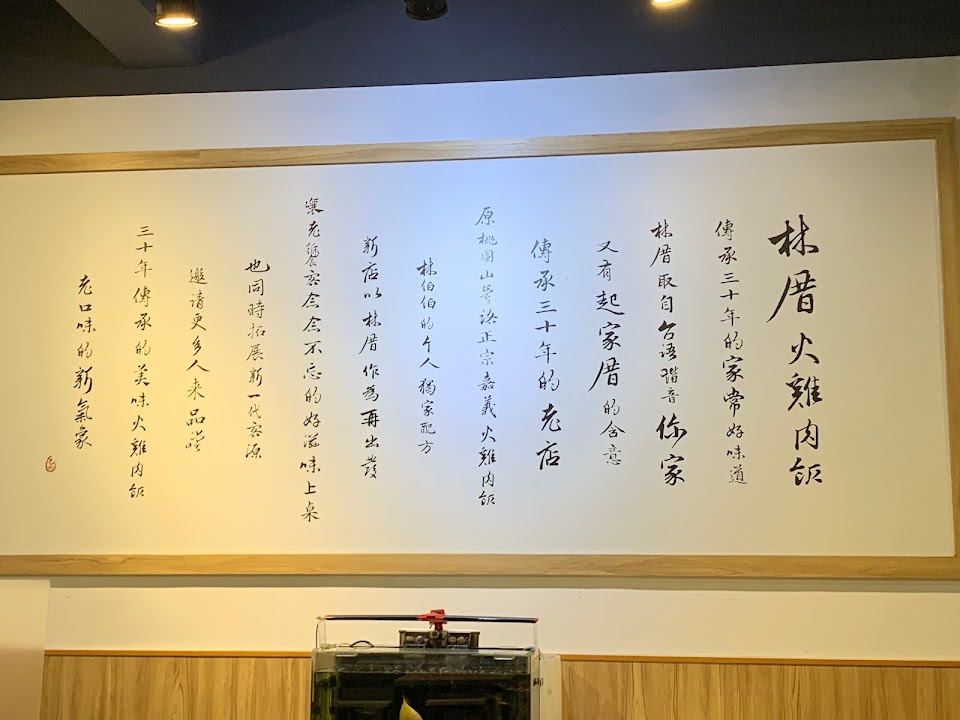 林厝火雞肉飯
傳承三十年的家常好味道
林厝取自台語諧音你家
又有起家厝的含意
傳承三十年的老店
原桃園山鶯路正宗嘉義火雞肉飯
林伯伯的个人獨家配方
新店以林厝作為再出發
讓老饕客念念不忘的好滋味上桌
也同時拓展新一代客源
邀請更多人来品嚐
三十年傳承的美味火雞肉飯
老口味的新氣象